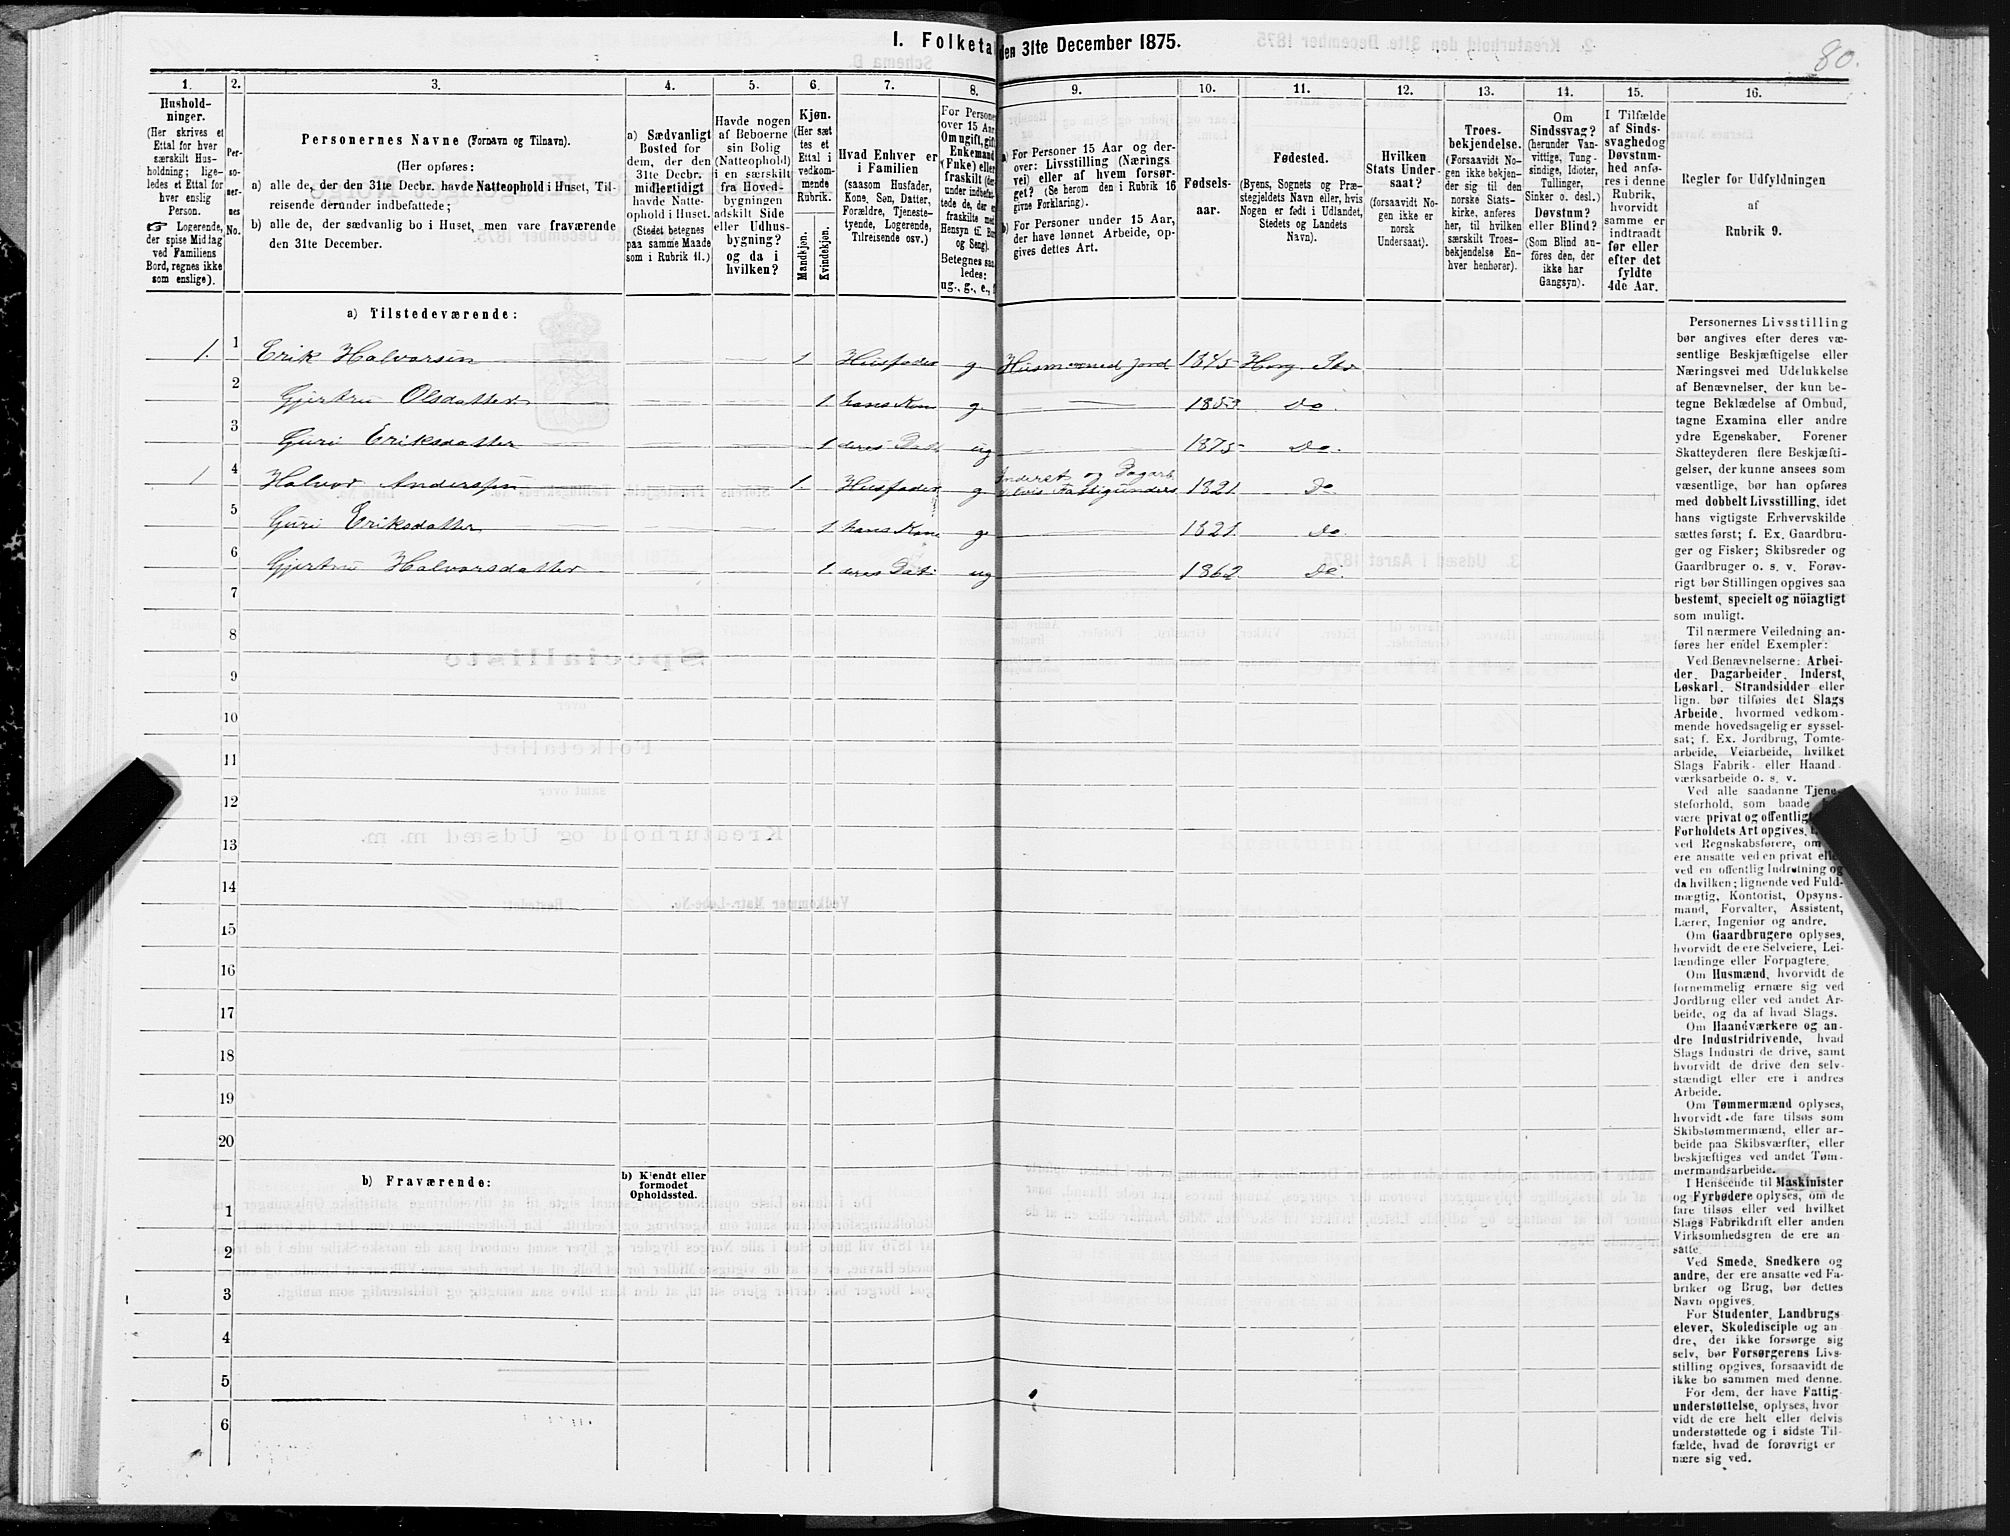 I. Folketal den 31te December 1875.
80.
1.
Husholdninger.
(Her skrives et
Ettal for hver
særskilt Husholdning;
ligeledes et Ettal for
hver enslig
Person.
☞ Logerende,
der spise Middag
ved Familiens
Bord, regnes ikke
som enslige).
2.
Personernes
No.
3.
Personernes Navne (Fornavn og Tilnavn).
(Her opføres:
a) alle de, der den 31te Decbr. havde Natteophold i Huset, Tilreisende derunder indbefattede;
b) alle de, der sædvanlig bo i Huset, men vare fraværende
den 31te December.
4.
a) Sædvanligt
Bosted for
dem, der den
31te Decbr.
midlertidigt
havde Natteophold i Huset.
(Stedet betegnes
paa samme Maade
som i Rubrik 11.)
5.
Havde nogen
af Beboerne
sin Bolig
(Natteophold)
i en særskilt
fra Hovedbygningen
adskilt Side
eller Udhusbygning?
og da i
hvilken?
6.
Kjøn.
(Her sættes et
Ettal i
vedkommende
Rubrik.
Mandkjøn.
Kvindekjøn.
7.
Hvad Enhver er
i Familien
(saasom Husfader,
Kone, Søn, Datter,
Forældre, Tjenestetyende, Logerende,
Tilreisende osv.)
8.
For Personer
over 15 Aar
Om ugift, gift,
Enkemand
(Enke) eller
fraskilt
Betegnes saaledes:
ug., g., e.,
9.
a) For Personer 15 Aar og derover: Livsstilling (Næringsvei) eller af hvem forsørget? (Se herom den i Rubrik 16
givne Forklaring).
b) For Personer under 15 Aar,
der have lønnet Arbeide, opgives dettes Art.
10.
Fødselsaar.
11.
Fødested.
(Byens, Sognets og Præstegjeldets Navn eller, hvis
Nogen er født i Udlandet,
Stedets og Landets
Navn).
12.
Hvilken
Stats Undersaat?
(forsaavidt Nogen ikke er
norsk
Undersaat).
13.
Troesbekjendelse.
(Forsaavidt Nogen ikke bekjender sig til den
norske Statskirke, anføres
her, til hvilken
særskilt Troesbekjendelse Enhver henhører).
14.
Om
Sindssvag?
(herunder Vanvittige, Tungsindige, Idioter,
Tullinger,
Sinker o. desl.)
Døvstum?
eller Blind?
(Som Blind anføres den, der
ikke har
Gangsyn).
15.
I Tilfælde
af Sindssvaghed og
Døvstumhed anføres i denne
Rubrik,
hvorvidt
samme er
indtraadt
før eller
efter det
fyldte
4de Aar.
16.
Regler for Udfyldningen
af
Rubrik 9.
a) Tilstedeværende:
1. 1 Erik Halvorsen 1 Husfader g Husm. med Jord 1845 Horg Pr.
2 Gjertru Olsdatter 1 hans Kone g 1853 Do.
3 Guri Eriksdatter 1 deres Datt. ug 1875 Do.
1 4 Halvor Anderssen 1. Husfader g Inderst og Dagarb. delvis Fattigunderst. 1821 Do
5 Guri Eriksdatter 1 hans Kone g 1821 Do.
6 Gjertru Halvorsdatter 1. deres Dat. ug 1862 Do.
7
8
9
10
11
12
13
14
15
16
17
18
19
20
b) Fraværende:
b) Kjendt eller
formodet
Opholdssted.
1
2
3
4
5
6
Personernes Livsstilling
bør angives efter deres væsentlige Beskjæftigelse eller
Næringsvei med Udelukkelse
af Benævnelser, der kun betegne Beklædelse af Ombud,
tagne Examina eller andre
ydre Egenskaber. Forener
Skatteyderen flere Beskjæftigelser, der kunne ansees som
væsentlige, bør han opføres
med dobbelt Livsstilling, idet
hans vigtigste Erhvervskilde
sættes først; f. Ex. Gaardbruger og Fisker; Skibsreder og
Gaardbruger o. s. v. Forøvrigt bør Stillingen opgives saa
bestemt, specielt og nöiagtigt
som muligt.
Til nærmere Veiledning anføres her endel Exempler:
Ved Benævnelserne: Arbeider, Dagarbeider, Inderst,
Løskarl, Strandsidder eller
lign. bør tilføies det Slags
Arbeide, hvormed vedkommende hovedsagelig er sysselsat; f. Ex. Jordbrug, Tomtearbeide, Veiarbeide, hvilket
Slags Fabrik- eller Haandværksarbeide o. s. v.
Ved alle saadanne Tjenesteforhold, som baade
være privat og offentlig
Forholdets Art opgives,
ved Regnskabsførere, om
ere ansatte ved en privat eller
ved en offentlig Indretning og
da hvilken; lignende ved Fuldmægtig, Kontorist, Opsynsmand, Forvalter, Assistent,
Lærer, Ingeniør og andre.
Om Gaardbrugere oplyses,
hvorvidt de ere Selveiere, Leilændinge eller Forpagtere.
Om Husmænd, hvorvidt de
fornemmelig ernære sig ved
Jordbrug eller ved andet Arbeide, og da af hvad Slags.
Om Haandværkere og andre Industridrivende, hvad
Slags Industri de drive, samt
hvorvidt de drive den selvstændigt eller ere i andres
Arbeide.
Om Tømmermænd oplyses,
hvorvidt de fare tilsøs som
Skibstømmermænd, eller arbeide paa Skibsværfter, eller
beskjæftiges ved andet Tømmermandsarbeide.
I Henseende til Maskinister
og Fyrbødere oplyses, om de
fare tilsøs eller ved hvilket
Slags Fabrikdrift eller anden
Virksomhedsgren de ere ansatte.
Ved Smede, Snedkere og
andre, der ere ansatte ved Fabriker og Brug, bør dettes
Navn opgives.
For Studenter, Landbrugselever, Skoledisciple og andre, der ikke forsørge sig
selv, bør Forsørgerens Livsstilling opgives, forsaavidt de
ikke bo sammen med denne.
For dem, der have Fattigunderstøttelse, oplyses, hvorvidt de ere helt eller delvis
understøttede og i sidste Tilfælde, hvad de forøvrigt ernære sig ved.